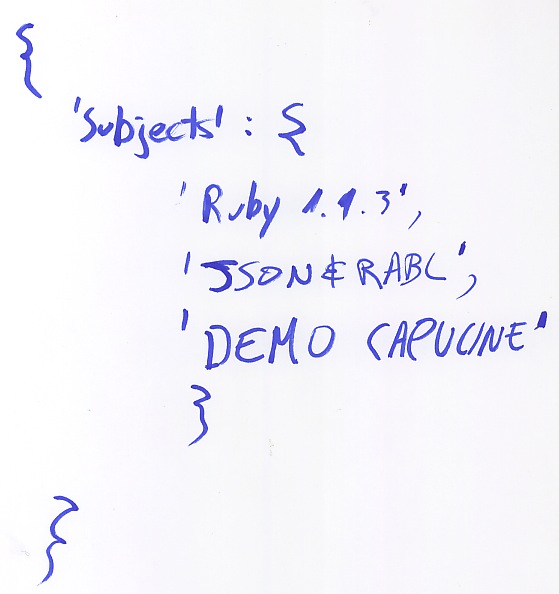 {
'Subjects' : {
'Ruby 1.9.3',
'JSON & RABL',
'DEMO CAPUCINE'
}
}